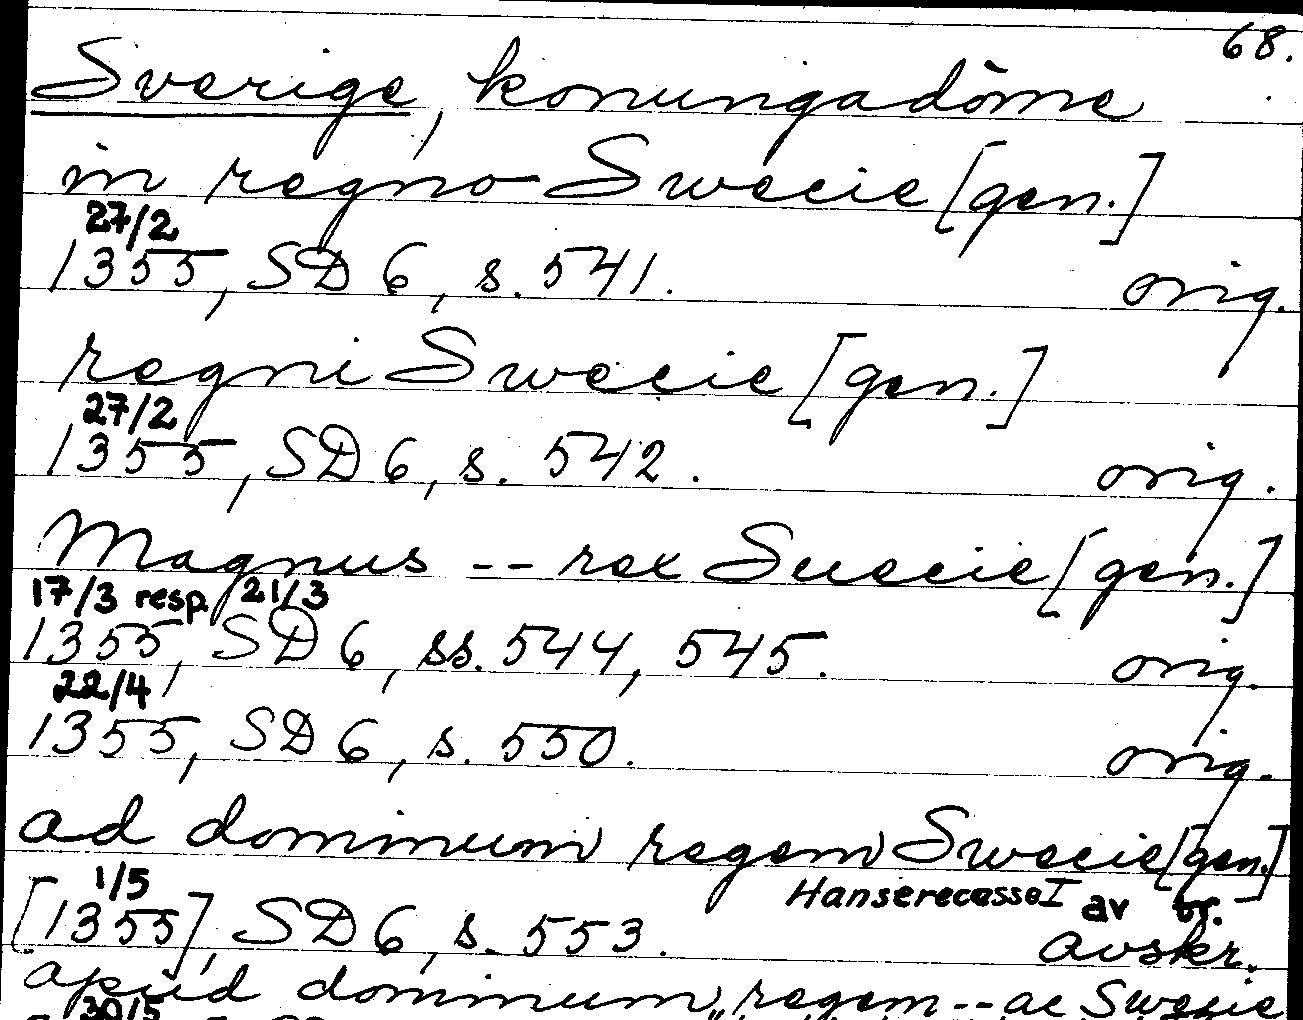 68.
Sverige, konungadöme
in regno Swecie [gen.]
27/2
1355, SD 6, s. 541. orig.
regni Swecie [gen.]
27/2
1355, SD 6, s. 542. orig.
Magnus -- rex Suecie [gen.]
17/3 resp. 21/3
1355, SD 6, ss. 544, 545. orig.
22/4
1355, SD 6, s. 550. orig.
ad dominum regem Swecie [gen.]
1/5 Hanserecesse I av
[1355], SD 6, s. 553. avskr.
apud dominum regem -- ac Swecie
30/5